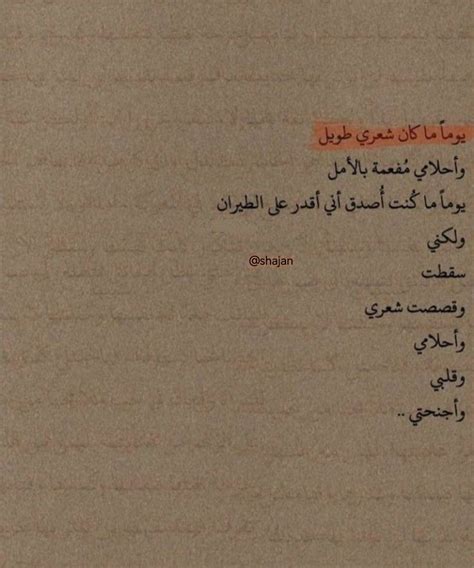 يوماً ما كان شعري طويل
وأحلامي مُفعمة بالأمل
يوماً ما كُنت أُصدق أني أقدر على الطيران
ولكني
@shajan
سقطت
وقصصت شعري
وأحلامي
وقلبي
وأجنحتي ..